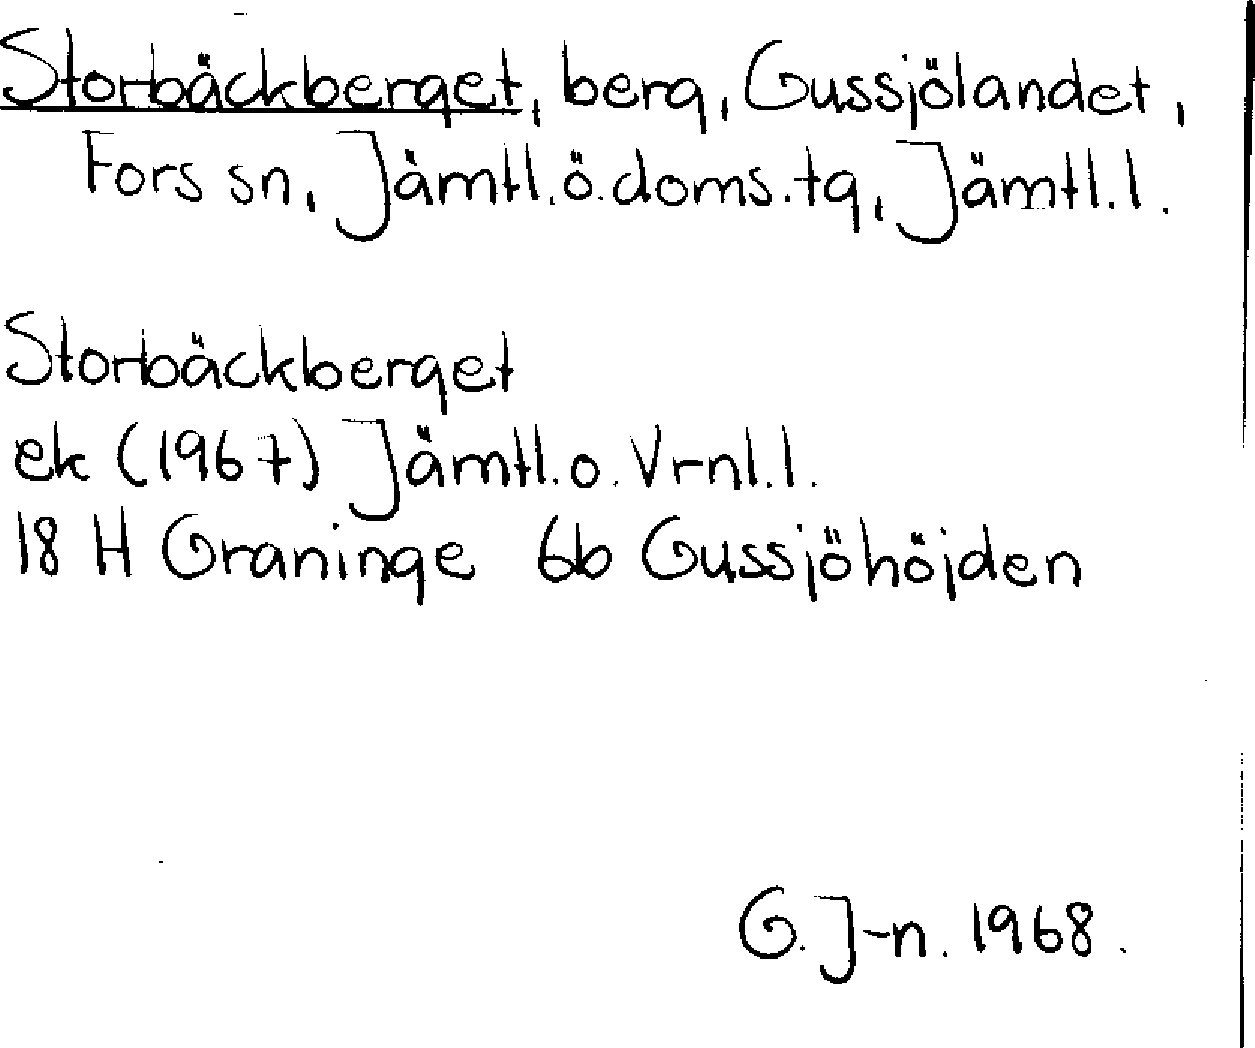 Storbäckberget, berg, Gussjölandet,
Fors sn, Jämtl.ö.doms.tg, Jämtl.l.
Storbäckberget
ek (1967) Jämtl.o.Vrnl.l.
18 H Graninge 6b Gussjöhöjden
G.J-n. 1968.